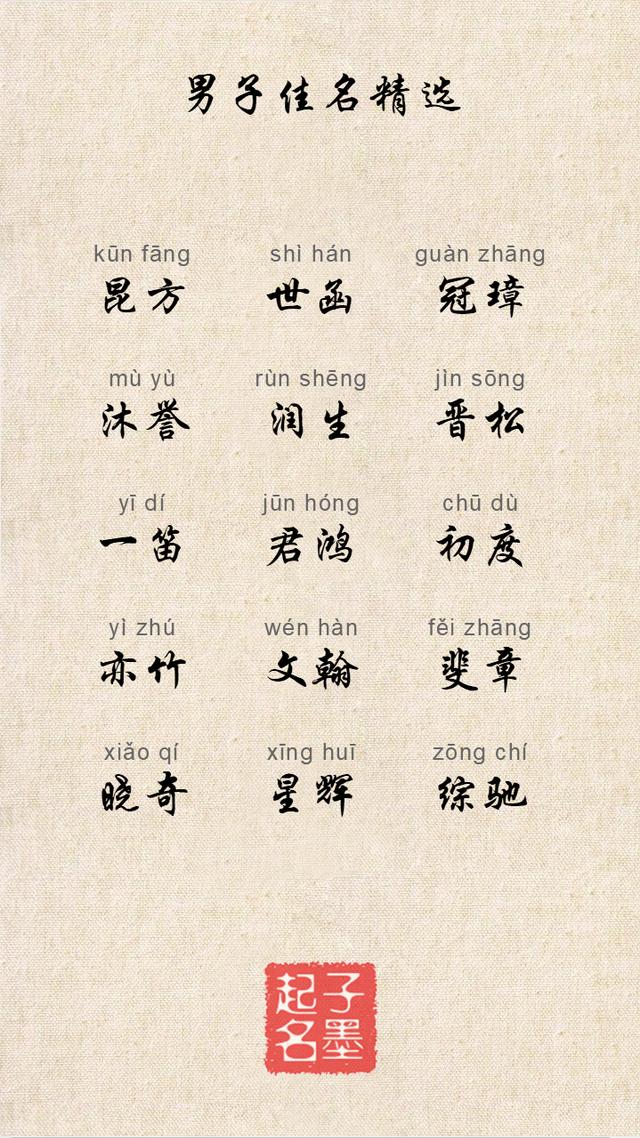 男子佳名精选
kūn fāng shì hán guàn zhāng
昆方 世函 冠璋
mù yù rùn shēng jìn sōng
沐誉 润生 晋松
yī dí jūn hóng chū dù
一笛 君鸿 初度
yì zhú wén hàn fěi zhāng
亦竹 文翰 斐章
xiǎo qí xīng huī zōng chí
晓奇 星辉 综驰
子墨
起名